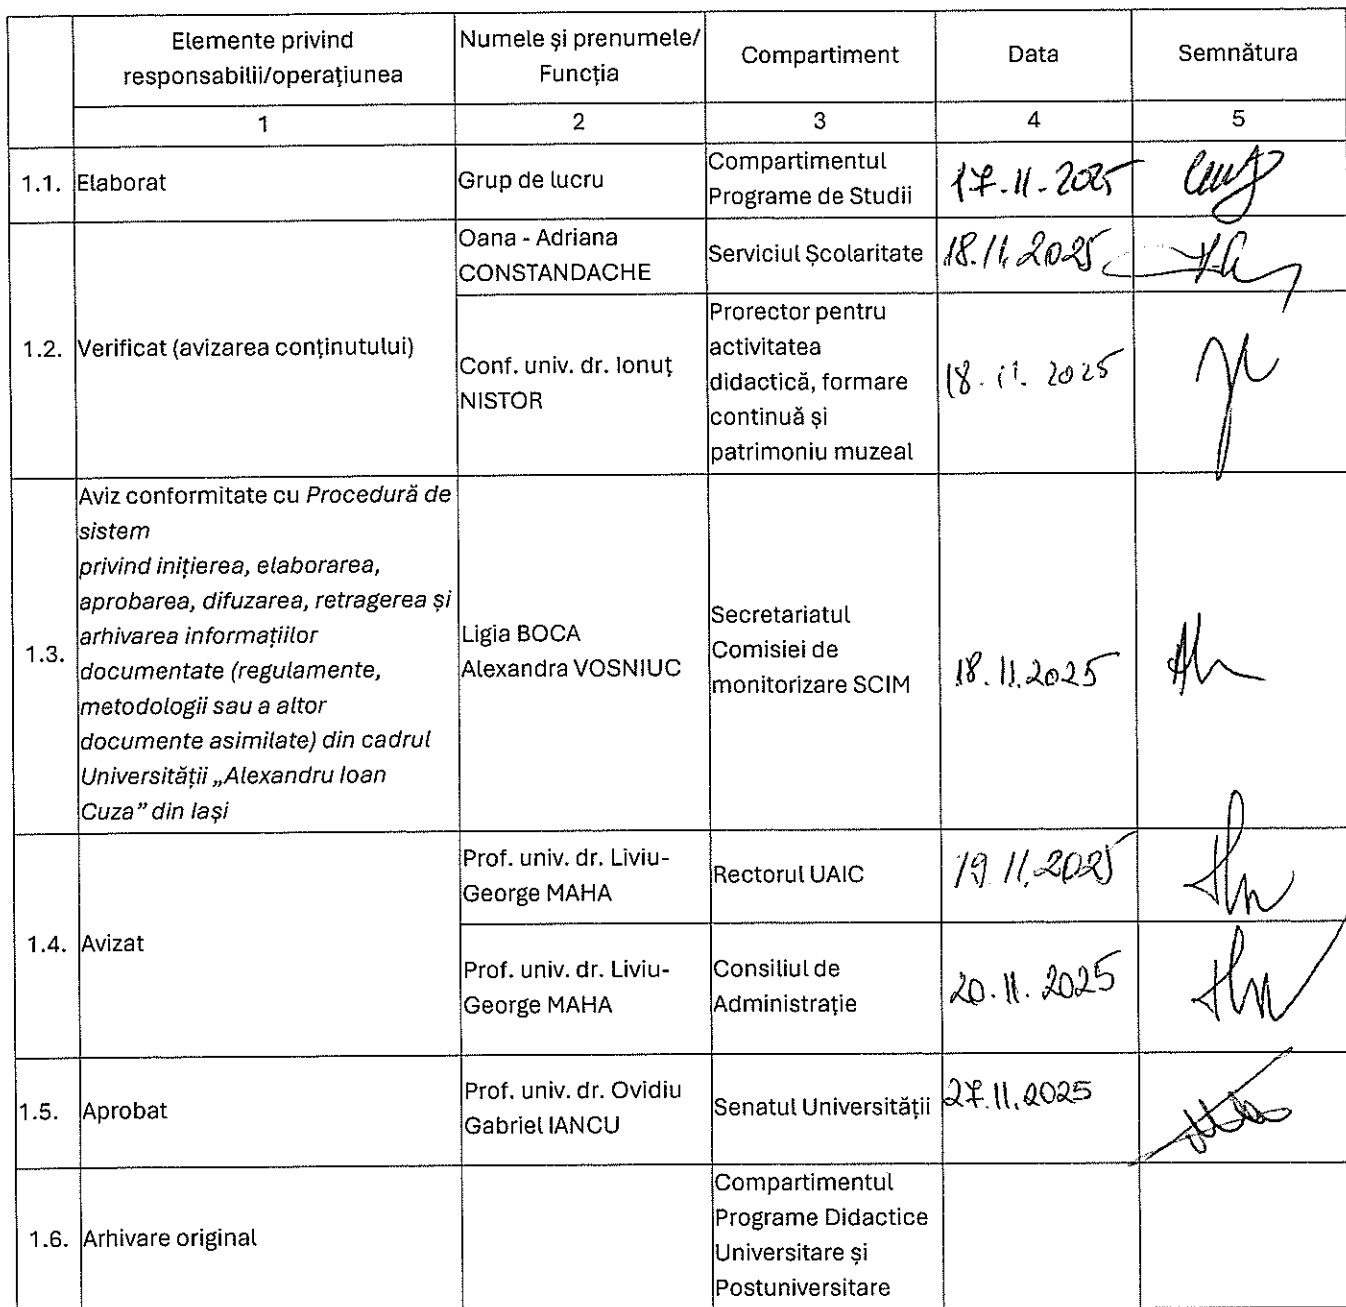 Elemente privind
responsabilii/operațiunea
Numele și prenumele/
Funcția
Compartiment
Data
Semnătura
1
2
3
4
5
1.1.
Elaborat
Grup de lucru
Compartimentul
Programe de Studii
17.11.2025
1.2.
Verificat (avizarea conținutului)
Oana - Adriana
CONSTANDACHE
Serviciul Școlaritate
18.11.2025
Conf. univ. dr. Ionuț
NISTOR
Prorector pentru
activitatea
didactică, formare
continuă și
patrimoniu muzeal
18.11.2025
1.3.
Aviz conformitate cu Procedură de
sistem
privind inițierea, elaborarea,
aprobarea, difuzarea, retragerea și
arhivarea informațiilor
documentate (regulamente,
metodologii sau a altor
documente asimilate) din cadrul
Universității „Alexandru Ioan
Cuza” din Iași
Ligia BOCA
Alexandra VOSNIUC
Secretariatul
Comisiei de
monitorizare SCIM
18.11.2025
1.4.
Avizat
Prof. univ. dr. Liviu-
George MAHA
Rectorul UAIC
19.11.2025
Prof. univ. dr. Liviu-
George MAHA
Consiliul de
Administrație
20.11.2025
1.5.
Aprobat
Prof. univ. dr. Ovidiu
Gabriel IANCU
Senatul Universității
27.11.2025
1.6.
Arhivare original
Compartimentul
Programe Didactice
Universitare și
Postuniversitare